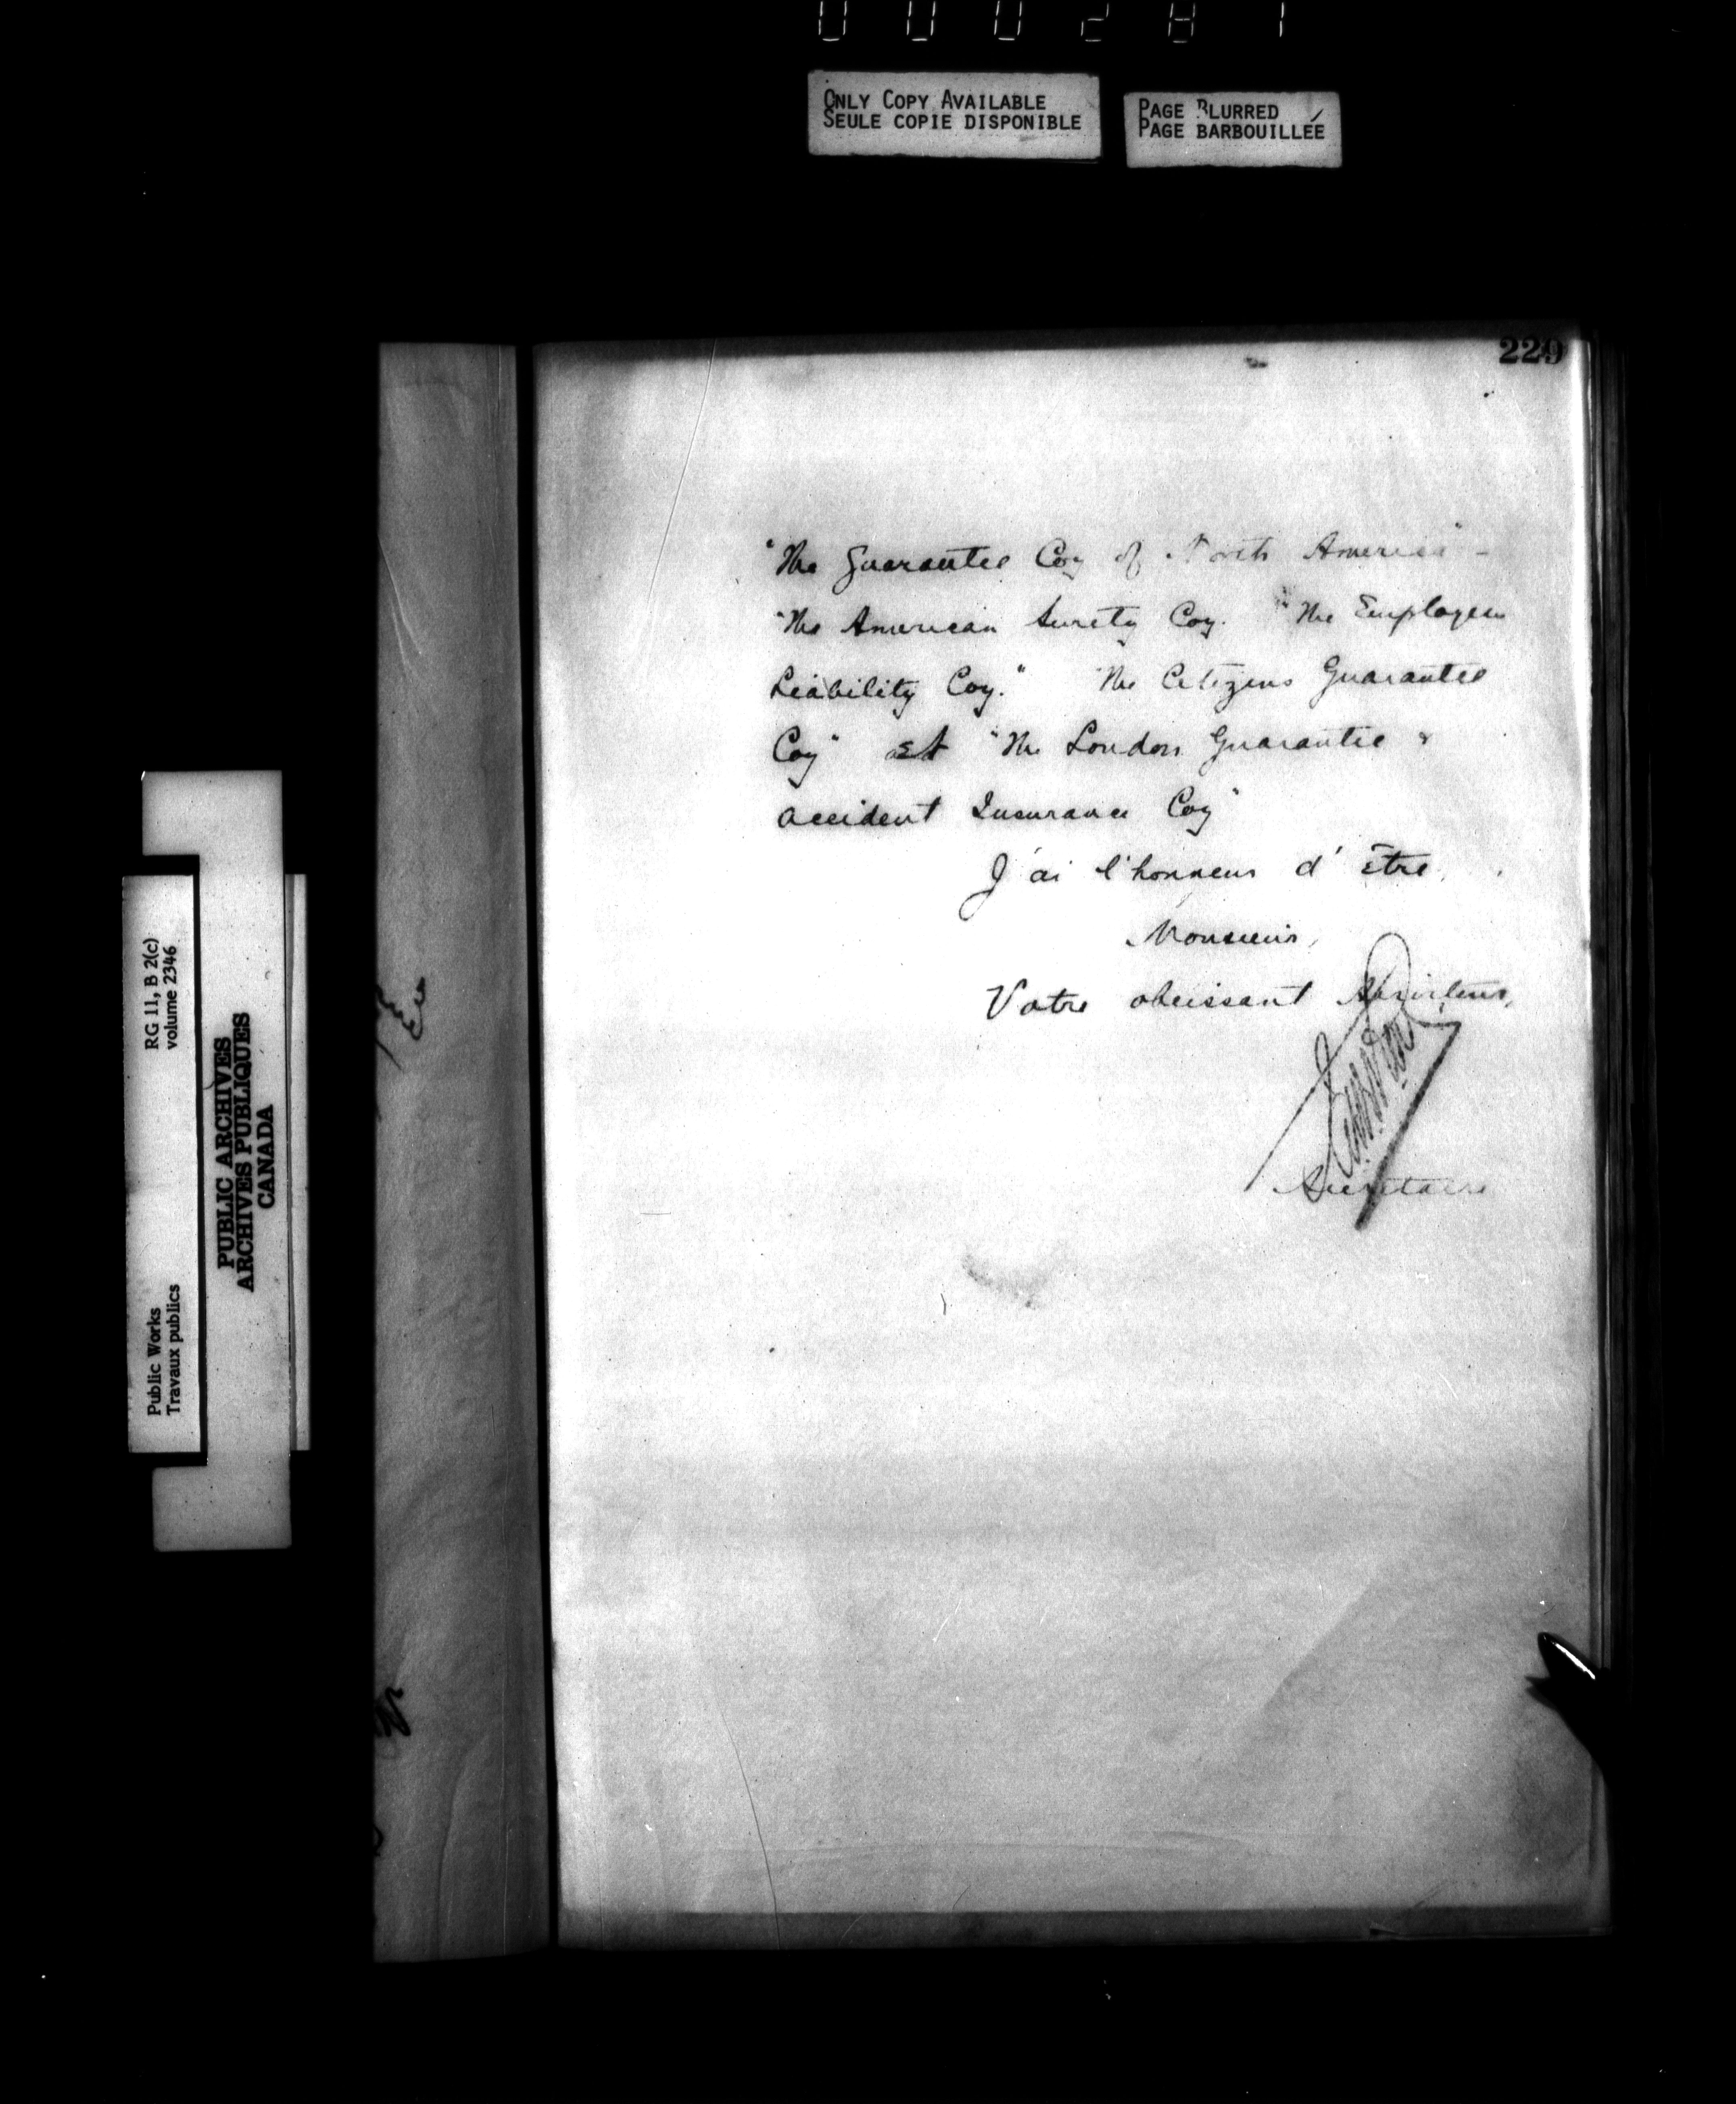 000281
ONLY COPY AVAILABLE
SEULE COPIE DISPONIBLE
PAGE BLURRED
PAGE BARBOUILLÉE
229
"The Guarantee Coy of North America" -
"The American Surety Coy. "The Employers
Liability Coy." "The Citizens Guarantee
Coy" et "The London Guarantee &
Accident Insurance Coy"
J'ai l'honneur d'être,
Monsieur,
Votre obeissant Serviteur,
Secretaire
RG 11, B 2(c)
volume 2346
Public Works
Travaux publics
PUBLIC ARCHIVES
ARCHIVES PUBLIQUES
CANADA